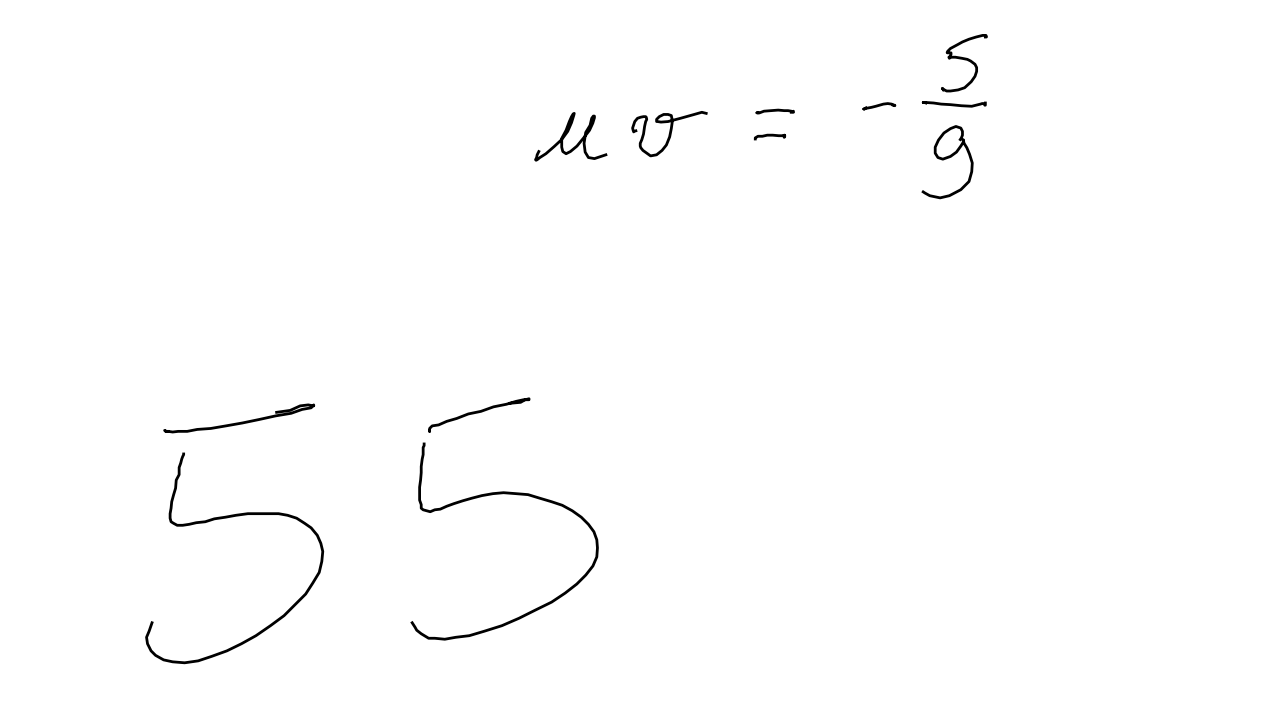 uv = -5/9
55